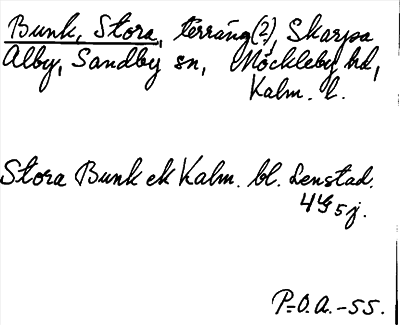 Bunk, Stora, terräng(?), Skarpa
Alby, Sandby sn, Möckleby hd,
Kalm. l.
Stora Bunk ek Kalm. bl. Lenstad.
4G5j.
P.O.A. -55.